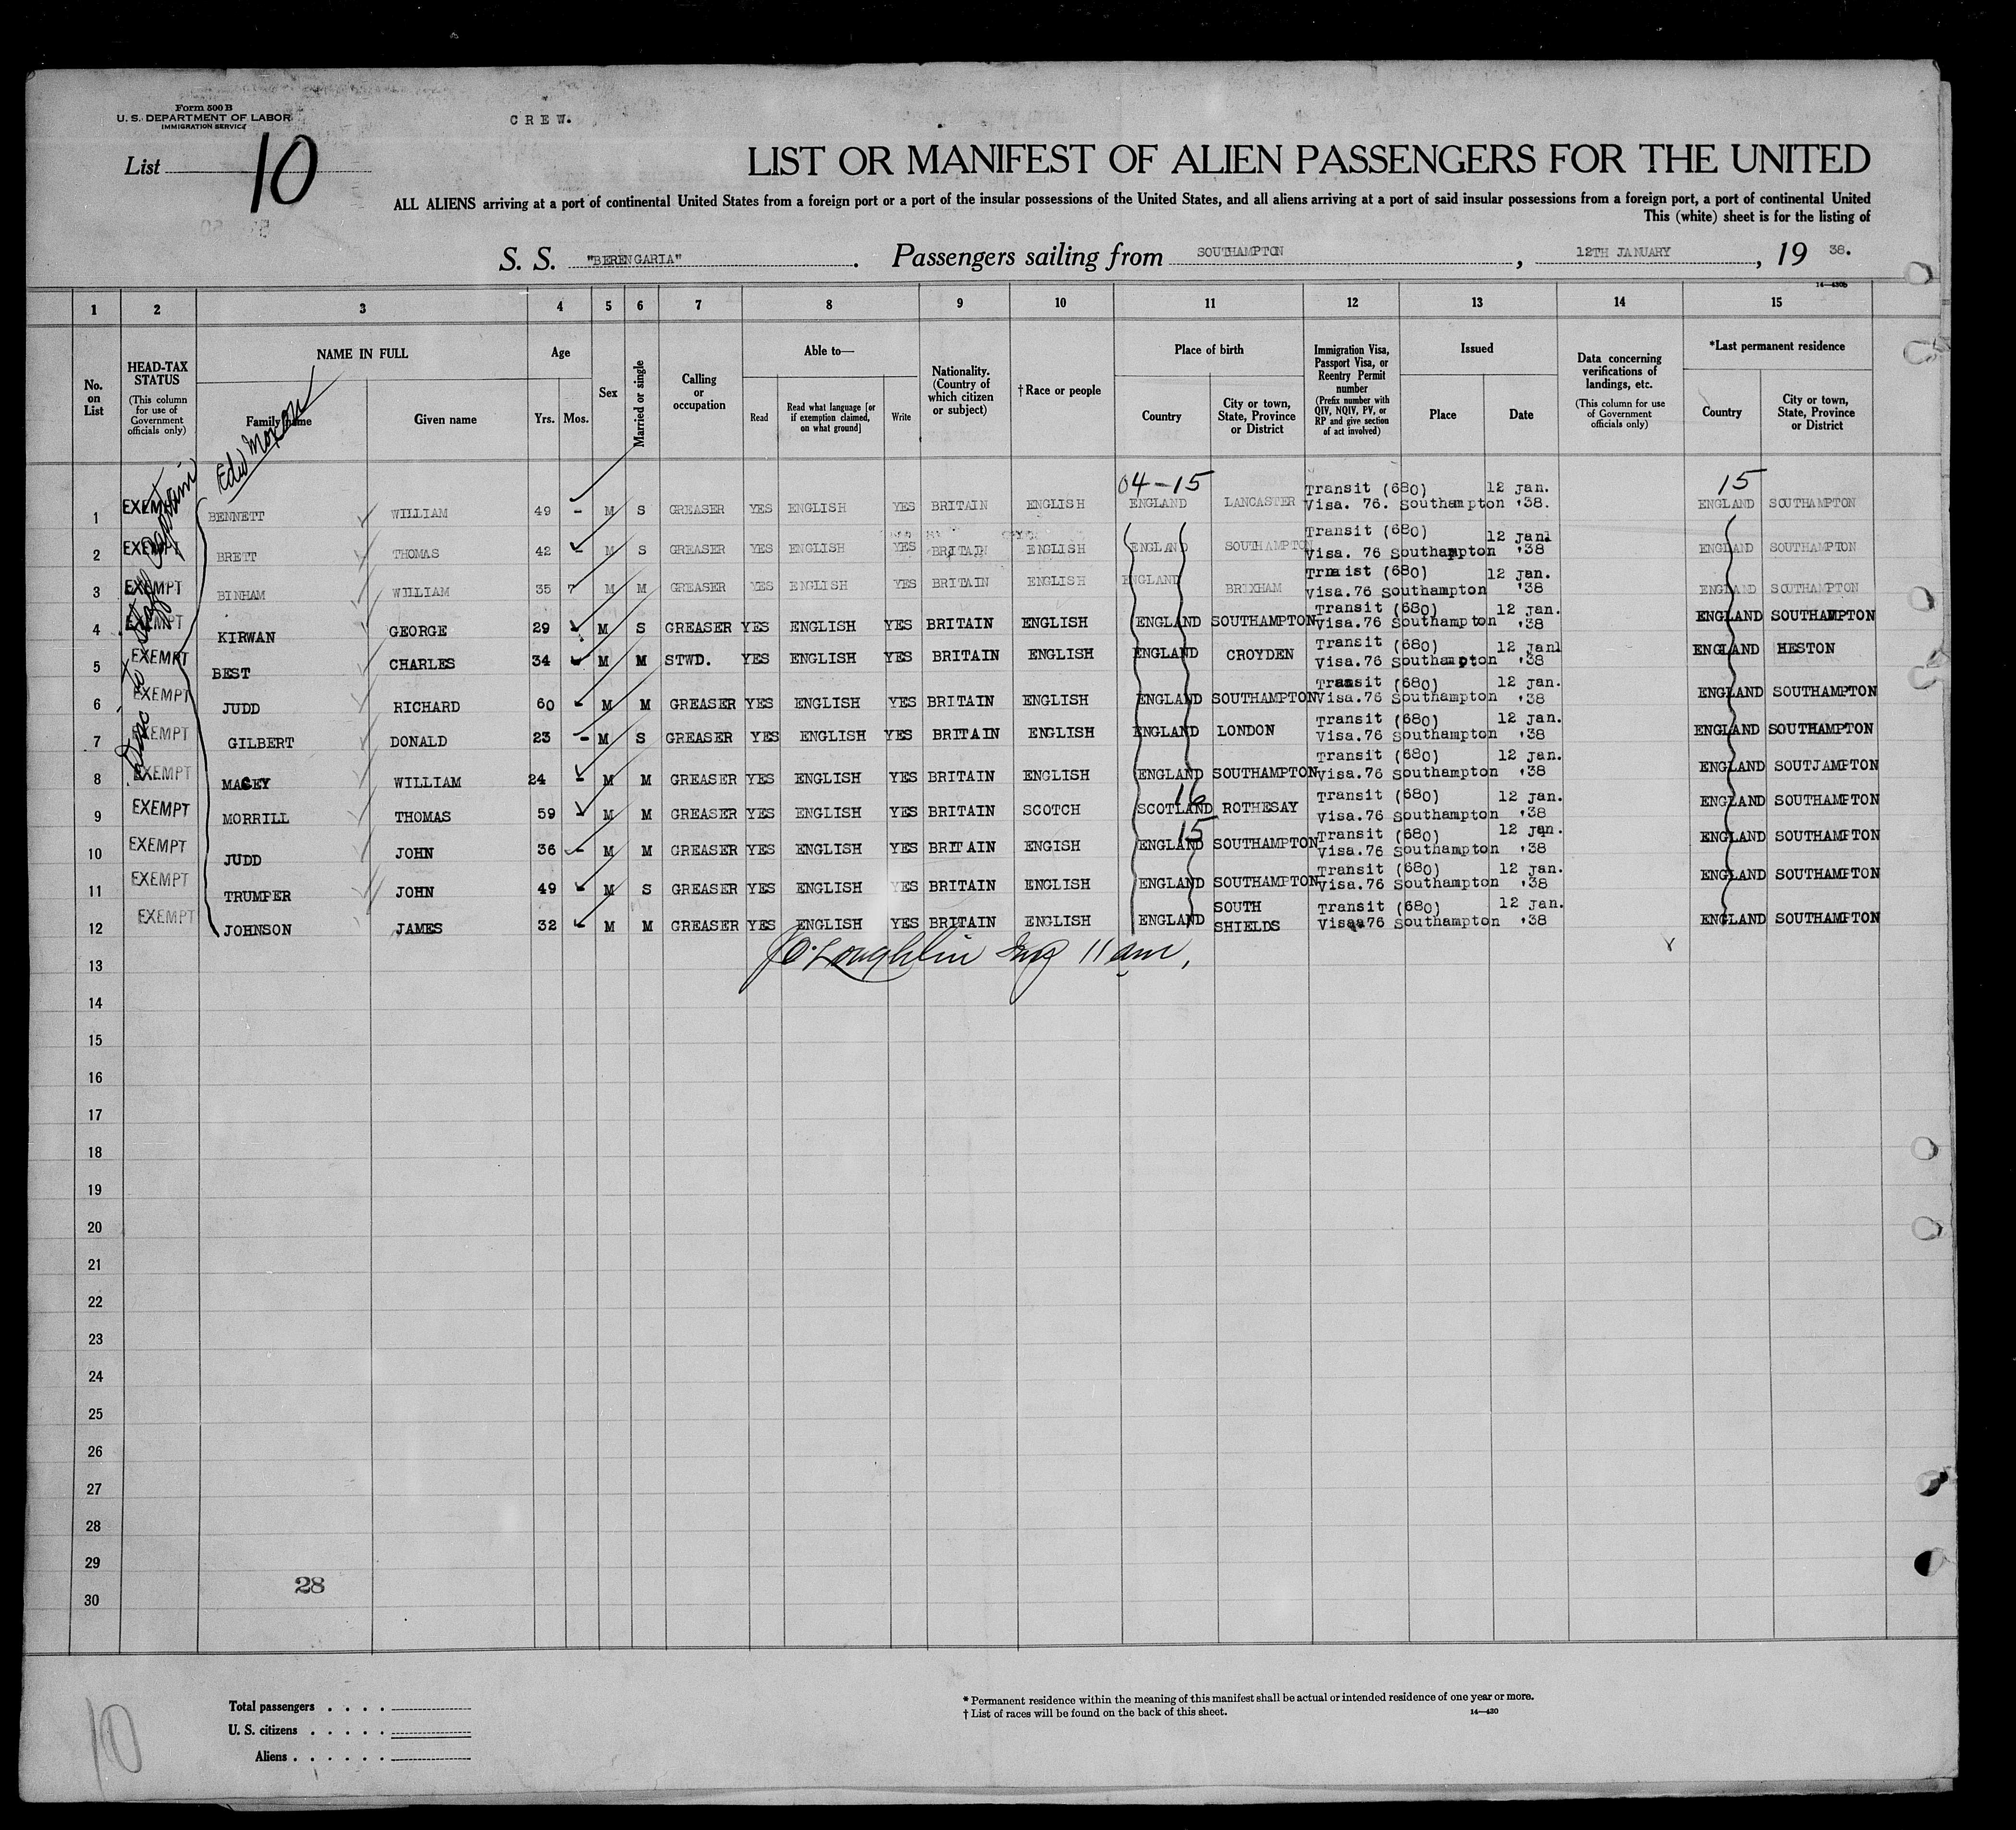 Form 500 B
U. S. DEPARTMENT OF LABOR
IMMIGRATION SERVICE
CREW.
List 10
LIST OR MANIFEST OF ALIEN PASSENGERS FOR THE UNITED
ALL ALIENS arriving at a port of continental United States from a foreign port or a port of the insular possessions of the United States, and all aliens arriving at a port of said insular possessions from a foreign port, a port of continental United
This (white) sheet is for the listing of
S. S. "BERENGARIA". Passengers sailing from SOUTHAMPTON, 12TH JANUARY, 19 38.
14—430b
1 2 3 4 5 6 7 8 9 10 11 12 13 14 15
No. on List
HEAD-TAX STATUS (This column for use of Government officials only)
NAME IN FULL
Family name
Given name
Age
Yrs. Mos.
Sex
Married or single
Calling or occupation
Able to—
Read
Read what language [or if exemption claimed, on what ground]
Write
Nationality. (Country of which citizen or subject)
†Race or people
Place of birth
Country
City or town, State, Province or District
Immigration Visa, Passport Visa, or Reentry Permit number (Prefix number with QIV, NQIV, PV, or RP and give section of act involved)
Issued
Place
Date
Data concerning verifications of landings, etc. (This column for use of Government officials only)
*Last permanent residence
Country
City or town, State, Province or District
04-15
15
1 EXEMPT BENNETT WILLIAM 49 - M S GREASER YES ENGLISH YES BRITAIN ENGLISH ENGLAND LANCASTER Transit (680) Visa. 76. Southampton 12 Jan. '38. ENGLAND SOUTHAMPTON
2 EXEMPT BRETT THOMAS 42 - M S GREASER YES ENGLISH YES BRITAIN ENGLISH ENGLAND SOUTHAMPTON Transit (680) Visa. 76 Southampton 12 Janl '38 ENGLAND SOUTHAMPTON
3 EXEMPT BINHAM WILLIAM 35 7 M M GREASER YES ENGLISH YES BRITAIN ENGLISH ENGLAND BRIXHAM Trmaist (680) Visa.76 Southampton 12 Jan. '38 ENGLAND SOUTHAMPTON
4 EXEMPT KIRWAN GEORGE 29 - M S GREASER YES ENGLISH YES BRITAIN ENGLISH ENGLAND SOUTHAMPTON Transit (680) Visa.76 Southampton 12 Jan. '38 ENGLAND SOUTHAMPTON
5 EXEMPT BEST CHARLES 34 - M M STWD. YES ENGLISH YES BRITAIN ENGLISH ENGLAND CROYDEN Transit (680) Visa.76 Southampton 12 Janl '38 ENGLAND HESTON
6 EXEMPT JUDD RICHARD 60 - M M GREASER YES ENGLISH YES BRITAIN ENGLISH ENGLAND SOUTHAMPTON Transit (680) Visa.76 Southampton 12 Jan. '38 ENGLAND SOUTHAMPTON
7 EXEMPT GILBERT DONALD 23 - M S GREASER YES ENGLISH YES BRITAIN ENGLISH ENGLAND LONDON Transit (680) Visa.76 Southampton 12 Jan. '38 ENGLAND SOUTHAMPTON
8 EXEMPT MACEY WILLIAM 24 - M M GREASER YES ENGLISH YES BRITAIN ENGLISH ENGLAND SOUTHAMPTON Transit (680) Visa.76 Southampton 12 Jan. '38 ENGLAND SOUTJAMPTON
16
9 EXEMPT MORRILL THOMAS 59 M M GREASER YES ENGLISH YES BRITAIN SCOTCH SCOTLAND ROTHESAY Transit (680) Visa.76 Southampton 12 Jan. '38 ENGLAND SOUTHAMPTON
15
10 EXEMPT JUDD JOHN 36 - M M GREASER YES ENGLISH YES BRITAIN ENGISH ENGLAND SOUTHAMPTON Transit (680) Visa.76 Southampton 12 Jan. '38 ENGLAND SOUTHAMPTON
11 EXEMPT TRUMPER JOHN 49 - M S GREASER YES ENGLISH YES BRITAIN ENGLISH ENGLAND SOUTHAMPTON Transit (680) Visa.76 Southampton 12 Jan. '38 ENGLAND SOUTHAMPTON
12 EXEMPT JOHNSON JAMES 32 - M M GREASER YES ENGLISH YES BRITAIN ENGLISH ENGLAND SOUTH SHIELDS Transit (680) Visaa76 Southampton 12 Jan. '38 ENGLAND SOUTHAMPTON
13 O'Loughlin Insp 11 am,
14
15
16
17
18
19
20
21
22
23
24
25
26
27
28
29
28
30
Total passengers . . . .
U. S. citizens . . . . .
Aliens . . . . . .
* Permanent residence within the meaning of this manifest shall be actual or intended residence of one year or more.
† List of races will be found on the back of this sheet.
14—430
10